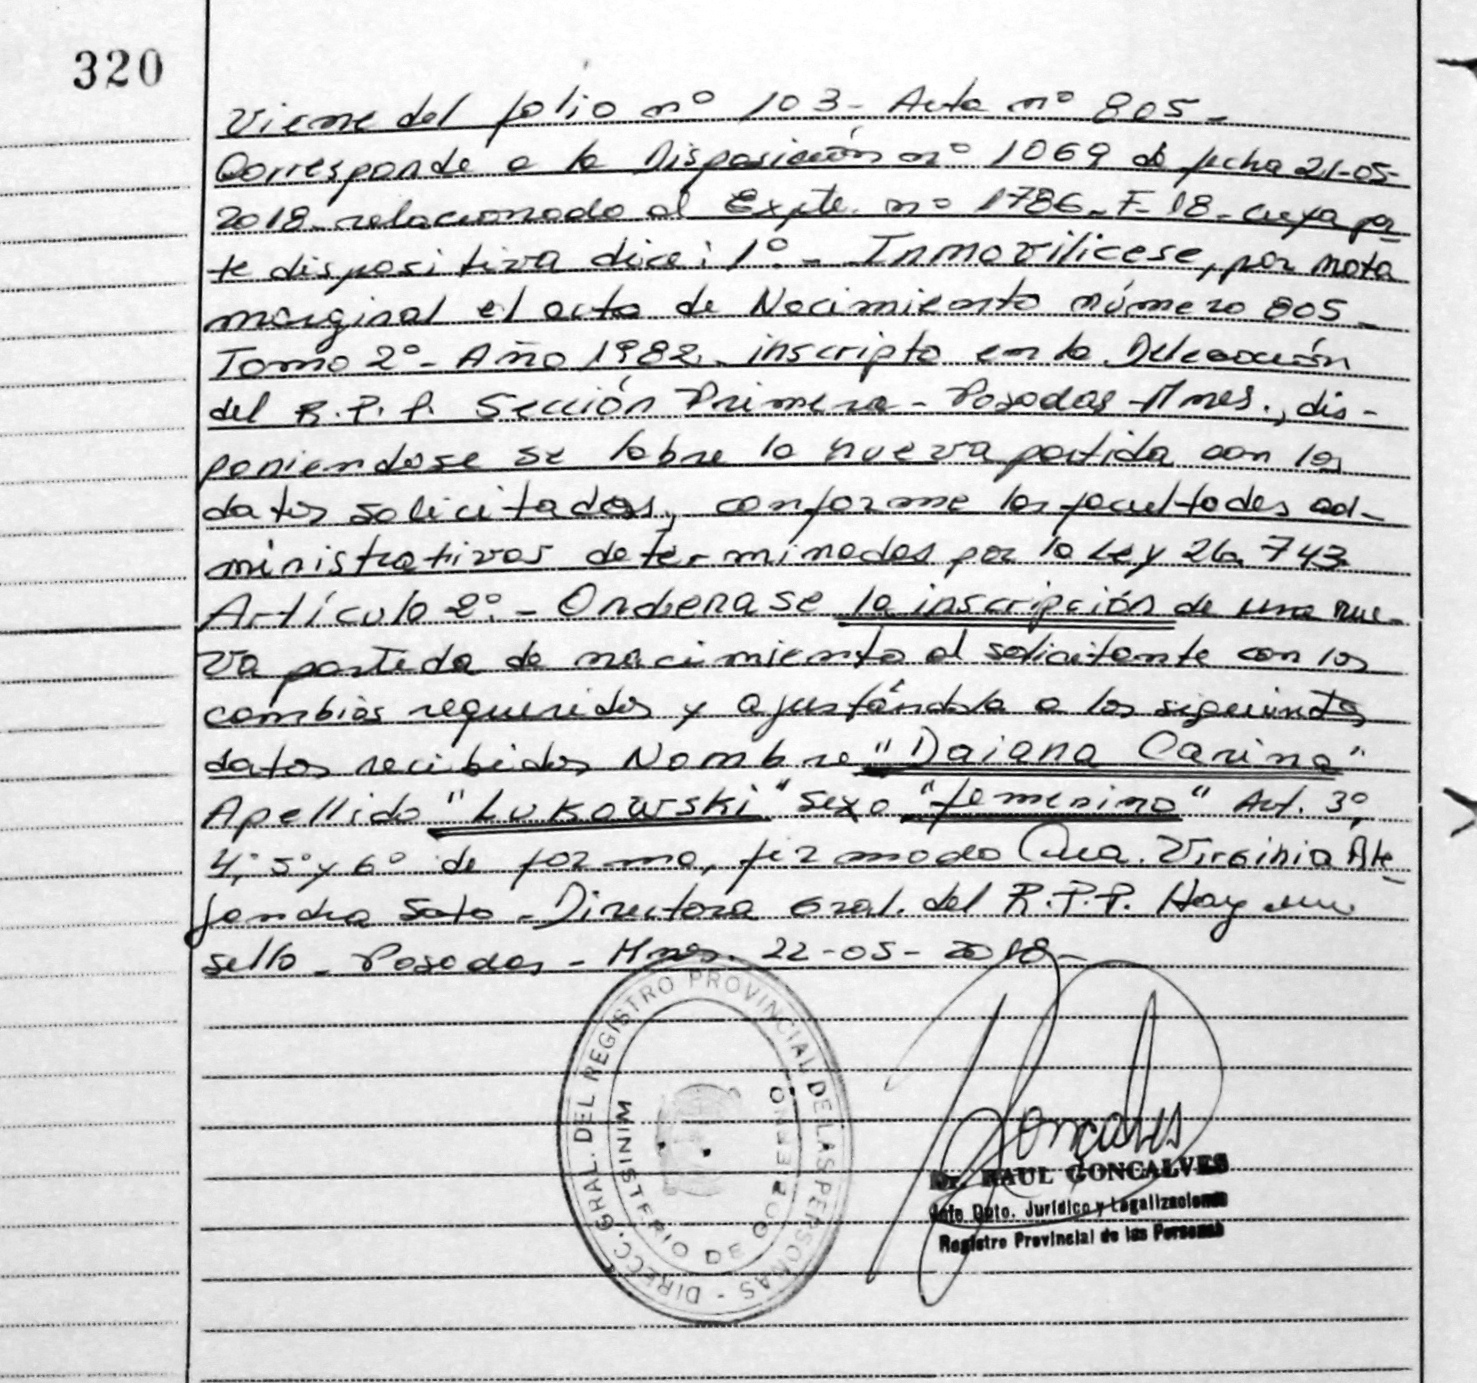 320
Viene del folio nº 103- Acta nº 805-
Corresponde a la Disposición nº 1069 de fecha 21-05-
2018- relacionado al Expte. nº 1786-F-18- cuya par-
te dispositiva dice: 1º- Inmovilicese, por nota
marginal el acta de Nacimiento número 805-
Tomo 2º- Año 1982- inscripta en la Delegación
del R.P.P. Sección Primera- Posadas-Mnes., dis-
poniendose se labre la nueva partida con los
datos solicitados, conforme las facultades ad-
ministrativas determinadas por la Ley 26.743
Artículo 2º.- Ordenase la inscripción de una nue-
va partida de nacimiento al solicitante con los
cambios requeridos y ajustándola a los siguientes
datos recibidos Nombre "Daiana Carina"
Apellido "Lukowski" sexo "femenino" Art. 3º,
4º, 5º y 6º de forma, firmado Dra. Virginia Ale-
jandra Soto- Directora Gral. del R.P.P. Hay un
sello- Posadas- Mnes. 22-05-2018-
DIRECC. GRAL. DEL REGISTRO PROVINCIAL DE LAS PERSONAS -
MINISTERIO DE GOBIERNO
Goncalves
Dr. RAUL GONCALVES
Jefe Dpto. Jurídico y Legalizaciones
Registro Provincial de las Personas